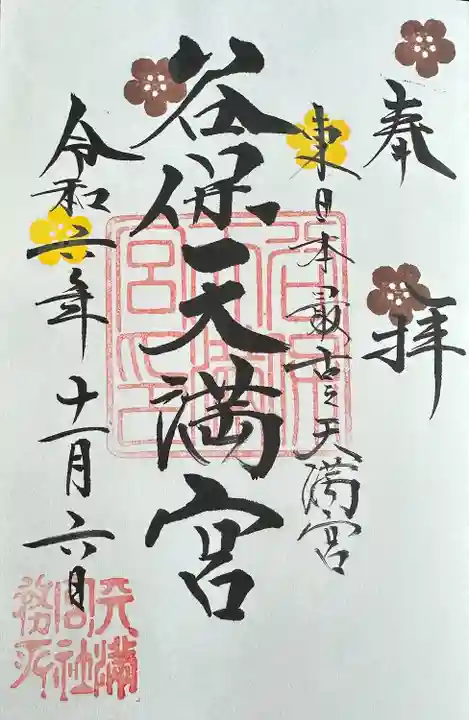 奉拝
東日本最古之天満宮
谷保天満宮
令和六年十一月六日
谷保天満宮印
天満宮社務所